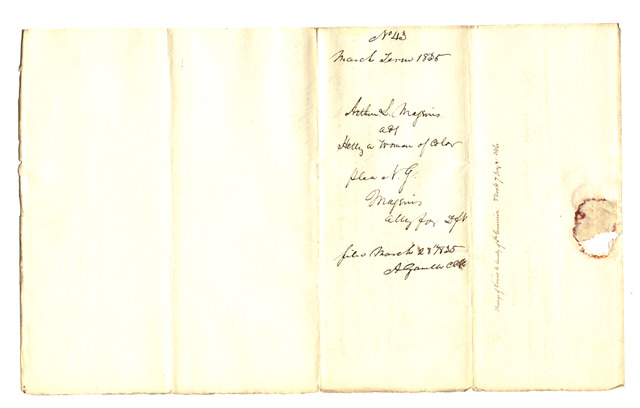 No 43
March Term 1835
Arthur L. Magenis
ads
Hetty a Woman of Color
Plea N G.
Magenis
atty for Dft
filed March 28th 1835
A Gamble Clk